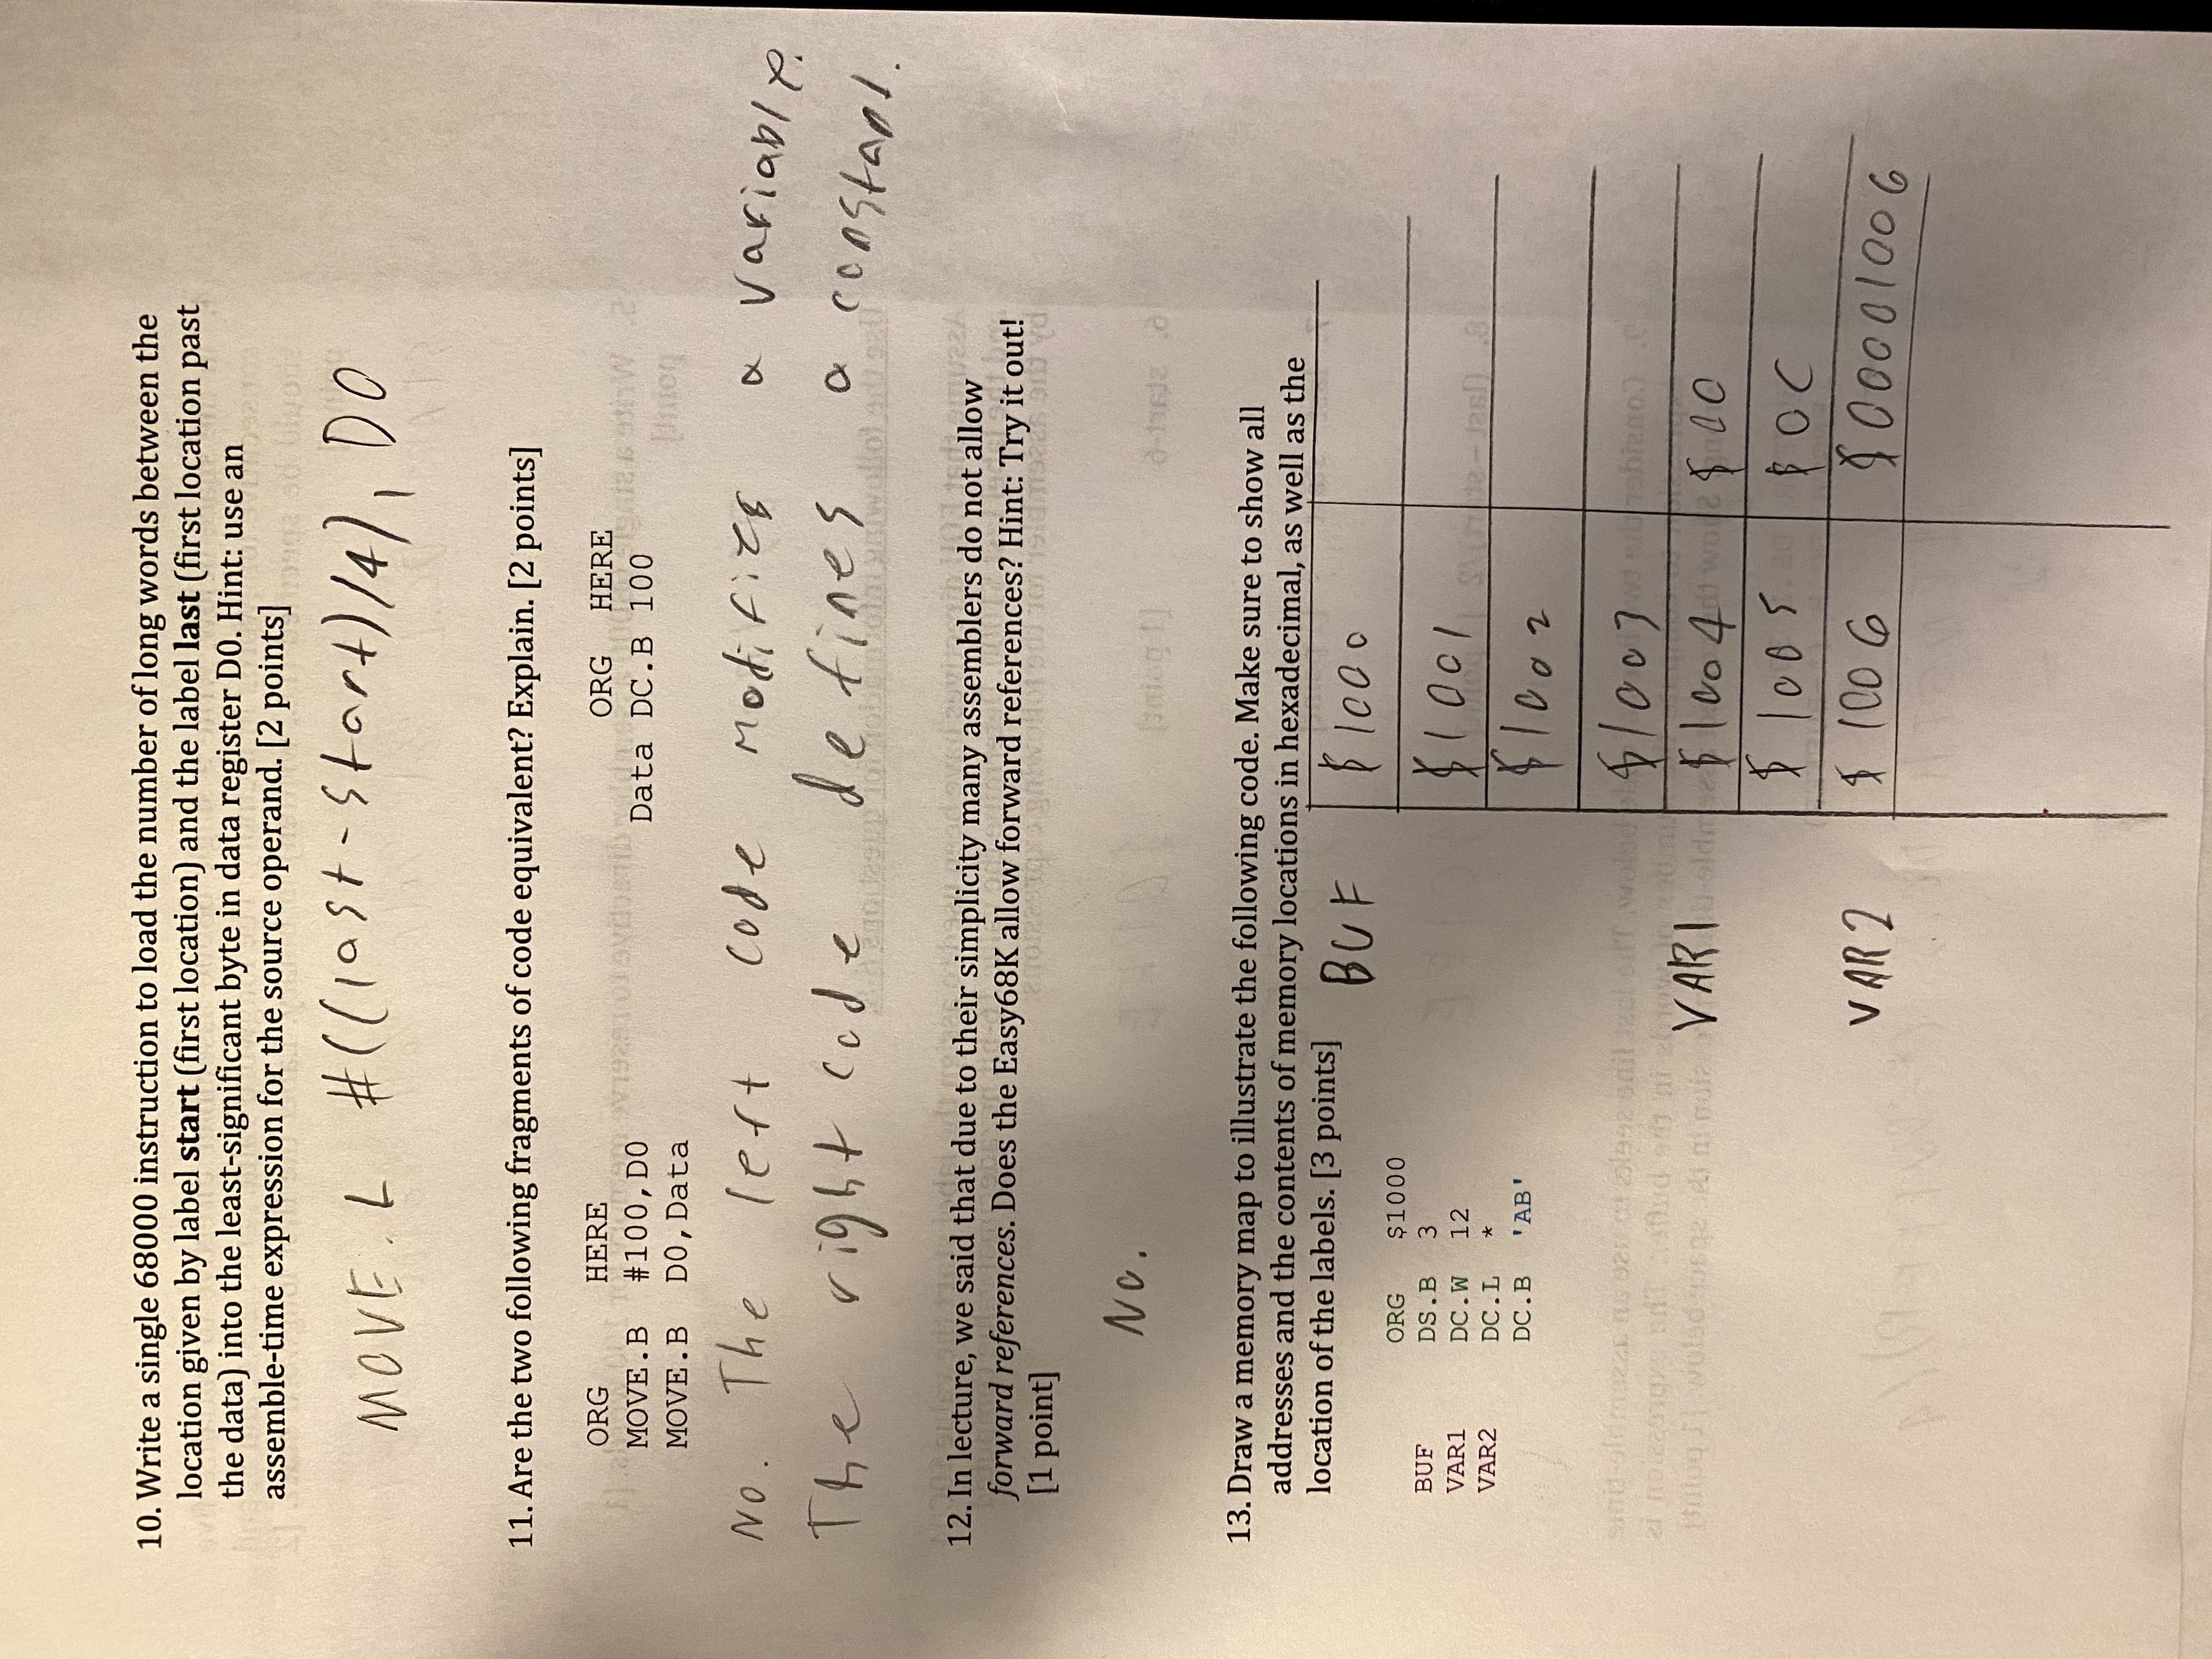 10. Write a single 68000 instruction to load the number of long words between the
location given by label start (first location) and the label last (first location past
the data) into the least-significant byte in data register D0. Hint: use an
assemble-time expression for the source operand. [2 points]
MOVE.L #((last-start)/4), D0
11. Are the two following fragments of code equivalent? Explain. [2 points]
ORG HERE
MOVE.B #100,D0
MOVE.B D0,Data
ORG HERE
Data DC.B 100
No. The left code modifies a variable.
The right code defines a constant.
12. In lecture, we said that due to their simplicity many assemblers do not allow
forward references. Does the Easy68K allow forward references? Hint: Try it out!
[1 point]
No.
13. Draw a memory map to illustrate the following code. Make sure to show all
addresses and the contents of memory locations in hexadecimal, as well as the
location of the labels. [3 points]
ORG $1000
BUF DS.B 3
VAR1 DC.W 12
VAR2 DC.L *
DC.B 'AB'
BUF $1000
$1001
$1002
$1003
VAR1 $1004 $00
$1005 $0C
VAR2 $1006 $00001006